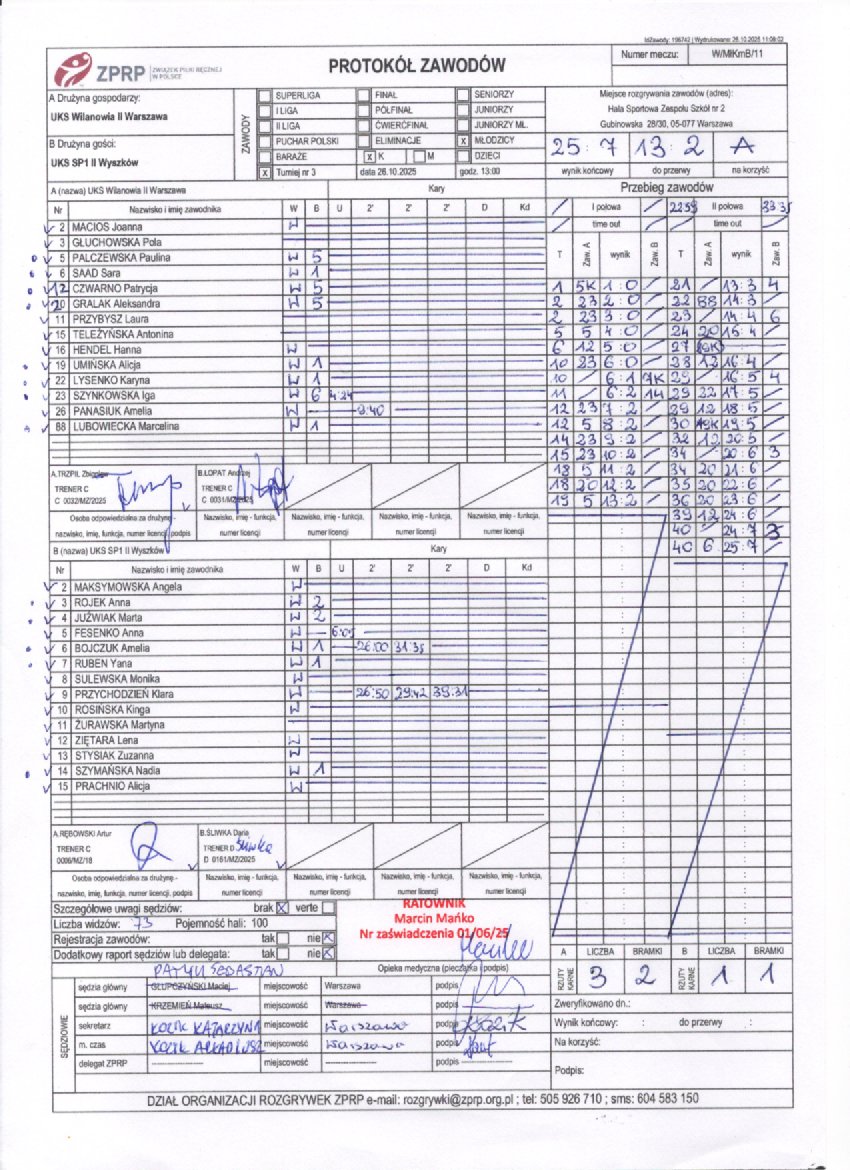 IdZawody: 196742 | Wydrukowano: 26.10.2025 11:09:02
ZPRP ZWIĄZEK PIŁKI RĘCZNEJ W POLSCE
PROTOKÓŁ ZAWODÓW
Numer meczu: W/MłKmB/11
A Drużyna gospodarzy:
UKS Wilanowia II Warszawa
B Drużyna gości:
UKS SP1 II Wyszków
ZAWODY
SUPERLIGA FINAŁ SENIORZY
I LIGA PÓŁFINAŁ JUNIORZY
II LIGA ĆWIERĆFINAŁ JUNIORZY MŁ.
PUCHAR POLSKI ELIMINACJE X MŁODZICY
BARAŻE X K M DZIECI
X Turniej nr 3 data 26.10.2025 godz. 13:00
Miejsce rozgrywania zawodów (adres):
Hala Sportowa Zespołu Szkół nr 2
Gubinowska 28/30, 05-077 Warszawa
25 : 7 13 : 2 A
wynik końcowy do przerwy na korzyść
A (nazwa) UKS Wilanowia II Warszawa Kary
Nr Nazwisko i imię zawodnika W B U 2' 2' 2' D Kd
2 MACIOS Joanna W
3 GŁUCHOWSKA Pola
5 PALCZEWSKA Paulina W 5
6 SAAD Sara W 1
12 CZWARNO Patrycja W 5
20 GRALAK Aleksandra W 5
11 PRZYBYSZ Laura
15 TELEŻYŃSKA Antonina
16 HENDEL Hanna W
19 UMIŃSKA Alicja W 1
22 LYSENKO Karyna W 1
23 SZYNKOWSKA Iga W 6 4:24
26 PANASIUK Amelia W 9:40
88 LUBOWIECKA Marcelina W 1
A.TRZPIL Zbigniew
TRENER C
C 0032/MZ/2025
B.ŁOPAT Andrzej
TRENER C
C 0031/MZ/2025
Osoba odpowiedzialna za drużynę - nazwisko, imię, funkcja, numer licencji, podpis
Nazwisko, imię - funkcja, numer licencji
Nazwisko, imię - funkcja, numer licencji
Nazwisko, imię - funkcja, numer licencji
Nazwisko, imię - funkcja, numer licencji
B (nazwa) UKS SP1 II Wyszków Kary
Nr Nazwisko i imię zawodnika W B U 2' 2' 2' D Kd
2 MAKSYMOWSKA Angela W
3 ROJEK Anna W 2
4 JUŹWIAK Marta W 2
5 FESENKO Anna W
6 BOJCZUK Amelia W 1 26:00 31:35
7 RUBEN Yana W 1
8 SULEWSKA Monika W
9 PRZYCHODZIEŃ Klara W 26:50 29:42 39:31
10 ROSIŃSKA Kinga W
11 ŻURAWSKA Martyna
12 ZIĘTARA Lena W
13 STYSIAK Zuzanna W
14 SZYMAŃSKA Nadia W 1
15 PRACHNIO Alicja W
A.RĘBOWSKI Artur
TRENER C
0006/MZ/18
B.ŚLIWKA Daria
TRENER D Śliwka
D 0161/MZ/2025
Osoba odpowiedzialna za drużynę - nazwisko, imię, funkcja, numer licencji, podpis
Nazwisko, imię - funkcja, numer licencji
Nazwisko, imię - funkcja, numer licencji
Nazwisko, imię - funkcja, numer licencji
Nazwisko, imię - funkcja, numer licencji
Przebieg zawodów
I połowa 22:59 II połowa 33:35
time out time out
T Zaw. A wynik Zaw. B T Zaw. A wynik Zaw. B
1 5K 1:0 21 13:3 4
2 23 2:0 22 88 14:3
2 23 3:0 23 14:4 6
5 5 4:0 24 20 15:4
6 12 5:0 27 19K
10 23 6:0 28 12 16:4
10 6:1 7K 29 16:5 4
11 6:2 14 29 22 17:5
12 23 7:2 29 12 18:5
12 5 8:2 30 19K 19:5
14 23 9:2 32 12 20:5
15 23 10:2 34 20:6 3
18 5 11:2 34 20 21:6
18 20 12:2 35 20 22:6
19 5 13:2 36 20 23:6
39 12 24:6
40 24:7 3
40 6 25:7
Szczegółowe uwagi sędziów: brak X verte
Liczba widzów: 73 Pojemność hali: 100
Rejestracja zawodów: tak nie X
Dodatkowy raport sędziów lub delegata: tak nie X
RATOWNIK
Marcin Mańko
Nr zaświadczenia 01/06/25
Opieka medyczna (pieczątka i podpis)
SĘDZIOWIE
PATYK SEBASTIAN
sędzia główny GŁUPCZYŃSKI Maciej miejscowość Warszawa podpis
sędzia główny KRZEMIEŃ Mateusz miejscowość Warszawa podpis
sekretarz KOZIK KATARZYNA miejscowość Warszawa podpis
m. czas KOZIK ARKADIUSZ miejscowość Warszawa podpis
delegat ZPRP miejscowość podpis
A LICZBA BRAMKI B LICZBA BRAMKI
RZUTY KARNE 3 2 RZUTY KARNE 1 1
Zweryfikowano dn.:
Wynik końcowy: : do przerwy :
Na korzyść:
Podpis:
DZIAŁ ORGANIZACJI ROZGRYWEK ZPRP e-mail: rozgrywki@zprp.org.pl ; tel: 505 926 710 ; sms: 604 583 150